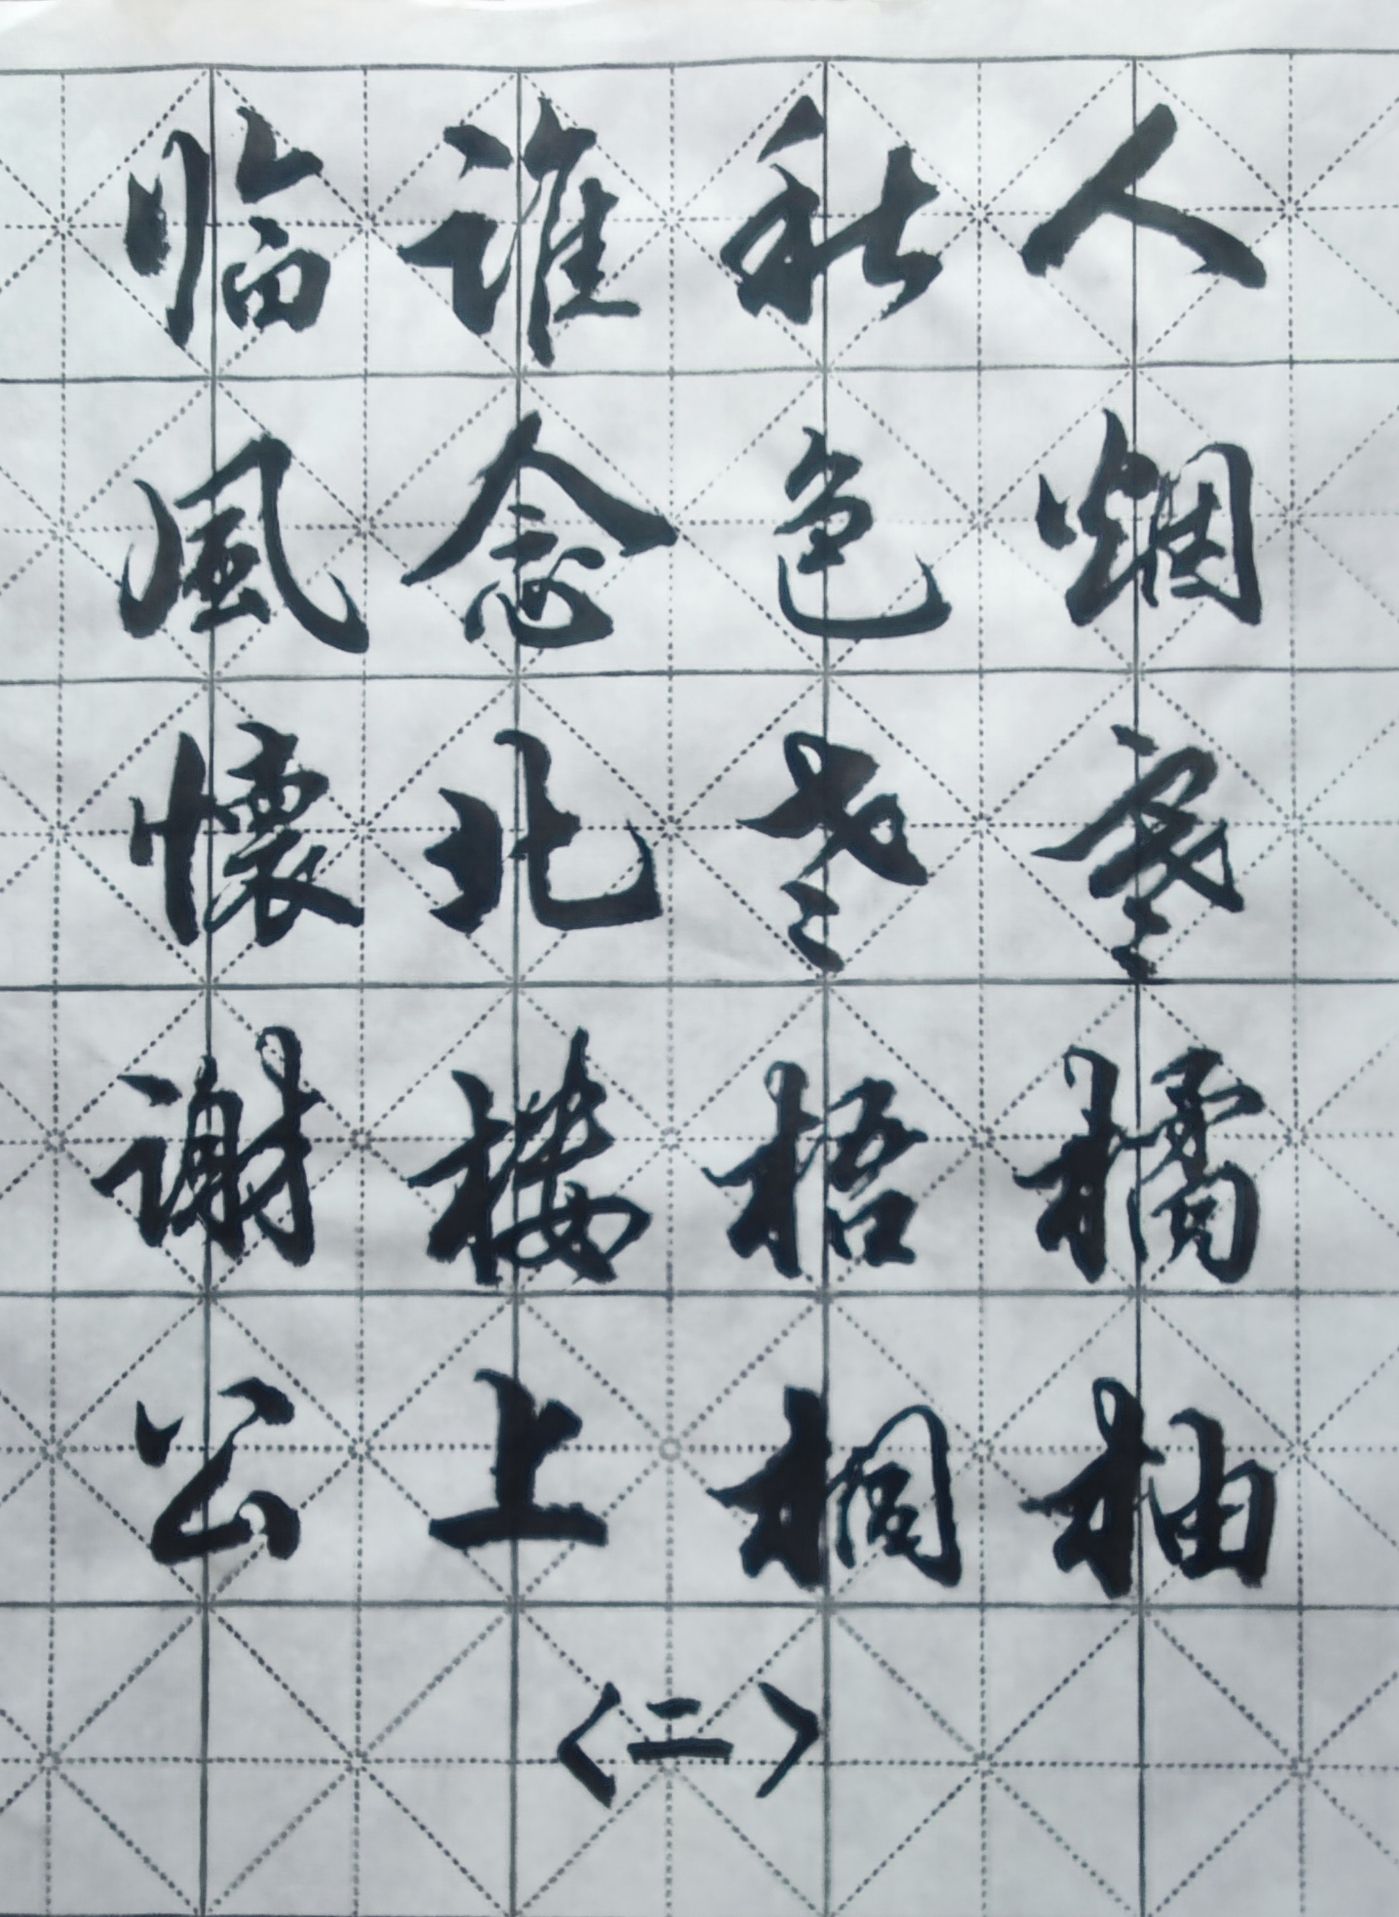 人烟寒橘柚
秋色老梧桐
谁念北楼上
临風懷谢公
〈二〉